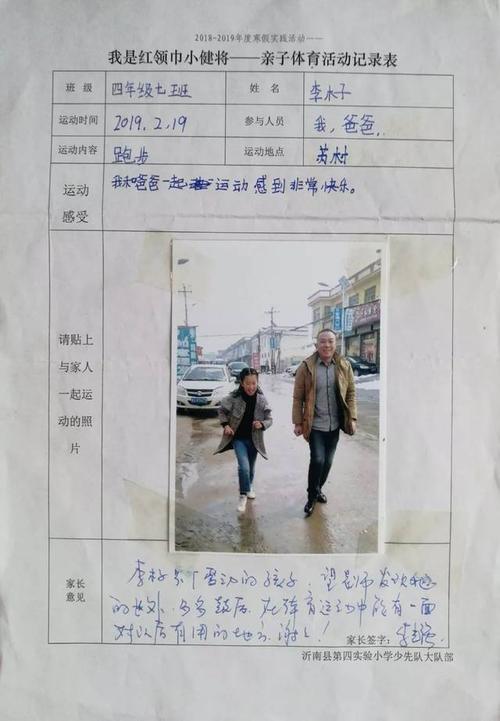 2018-2019年度寒假实践活动——
我是红领巾小健将——亲子体育活动记录表
班 级 四年级七班 姓 名 李木子
运动时间 2019.2.19 参与人员 我,爸爸,
运动内容 跑步 运动地点
运动 感受 我和爸爸一起运动感到非常快乐。
请贴上
与家人
一起运
动的照
片
家长 意见
的孩子,望老师发次他
的长处,多多鼓后,在体育运动中能有一面
对以后有用的地方,谢谢!
家长签字:
沂南县第四实验小学少先队大队部